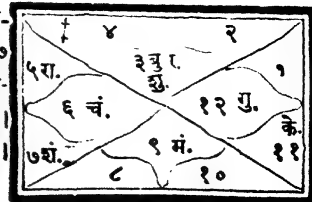 ४ २
३ बु र.
शु.
५ रा. १
६ चं. १२ गु.
के.
७ शं. ९ मं. ११
८ १०